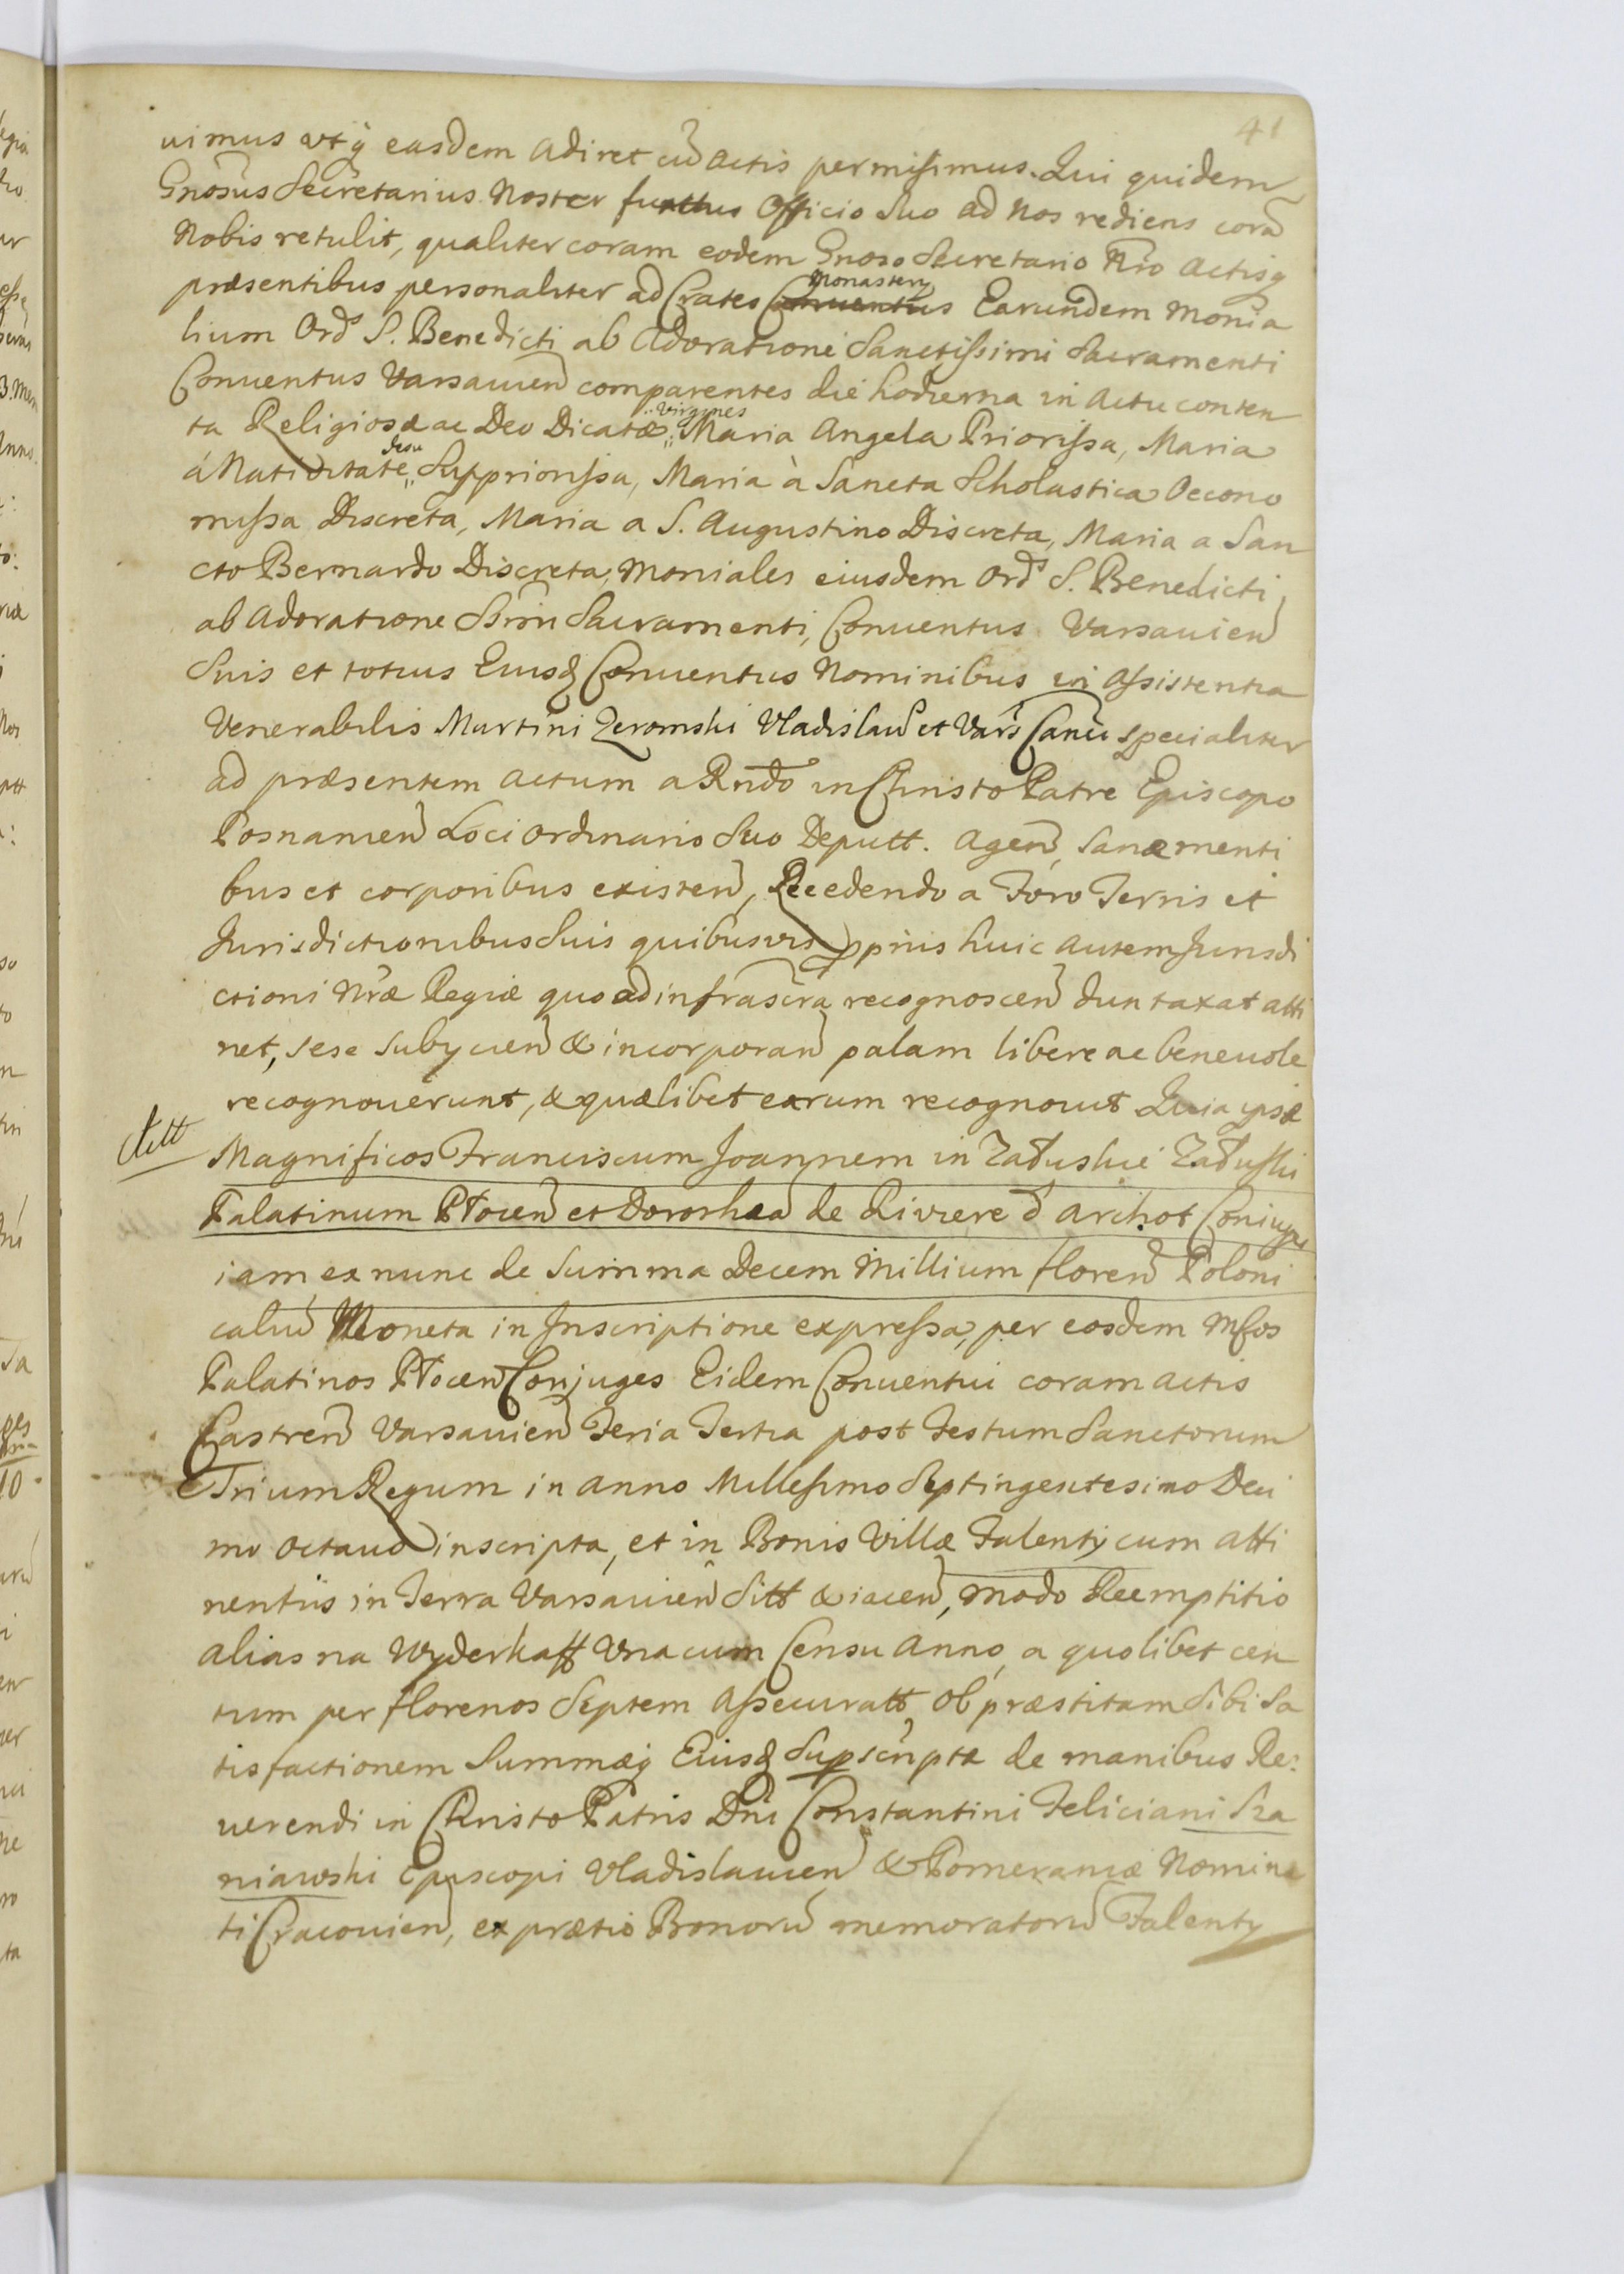 41
uimus utq̃ easdem adiret cũ actis permisimus. Qui quidem
Gnosus Secretarius Noster functus Officio Suo ad Nos rediens corã
Nobis retulit, qualiter coram eodem Gnoso Secretario Nro actisq
præsentibus personaliter ad Crates Conuentus Monastery Earundem Monia
lium Ords S. Benedicti ab Adoratione Sanctissimi Sacramenti
Conuentus Varsauien comparentes die hodierna in actu conten
ta Religiosæ ac Deo Dicatæ Virgines Maria Angela Priorissa, Maria
á Natiuitate Jesu Supriorissa, Maria à Sancta Scholastica Oecono
missa Discreta, Maria a S. Augustino Discreta, Maria a San
cto Bernardo Discreta, Moniales eiusdem Ords S. Benedicti
ab Adoratione SSmi Sacramenti, Conuentus Varsauien
Suis et totius Eiusd Conuentus Nominibus in assistentia
Venerabilis Martini Zeromski Vladislau et Vars Canci specialiter
ad præsentem actum a Rndo in Christo Patre Episcopo
Posnanien Loci Ordinario Suo Deputt. Agen, Sanæ menti
bus et corporibus existen, Recedendo a Foro Terris et
Jurisdictionibus Suis quibusvis ppriis huic autem Jurisdi
ctioni Nræ Regiæ quo ad infrascra recognoscen duntaxat atti
net, sese subycien & incorporan palam libere ac beneuole
recognouerunt, & quælibet earum recognouit Quia ipsæ
Magnificos Franciscum Joannem in Załuskie Załuski
Palatinum Płocen et Dorotheã de Riviere d'Archot Coniuges
iam ex nunc de Summa Decem Millium floren Poloni
caliũ Moneta in Inscriptione expressa, per eosdem Mfcos
Palatinos Płocen Conjuges Eidem Conuentui coram actis
Castren Varsauien Feria Tertia post Festum Sanctorum
Trium Regum in anno Millesimo Septingentesimo Deci
mo Octauo inscripta, et in Bonis Villæ Falenty cum atti
nentiis in Terra Varsauien Sitt & iacen, modo Reemptitio
alias na Wyderkaff Vna cum Censu anno, a quolibet cen
tum per florenos Septem Assecuratt, Ob præstitam Sibi Sa
tisfactionem Summæq Eiusd Supscriptæ de manibus Re:
uerendi in Christo Patris Dni Constantini Feliciani Sza
niawski Episcopi Vladislauien & Pomeraniæ Nomina
ti Cracouien, ex prætio Bonorũ memoratorũ Falenty